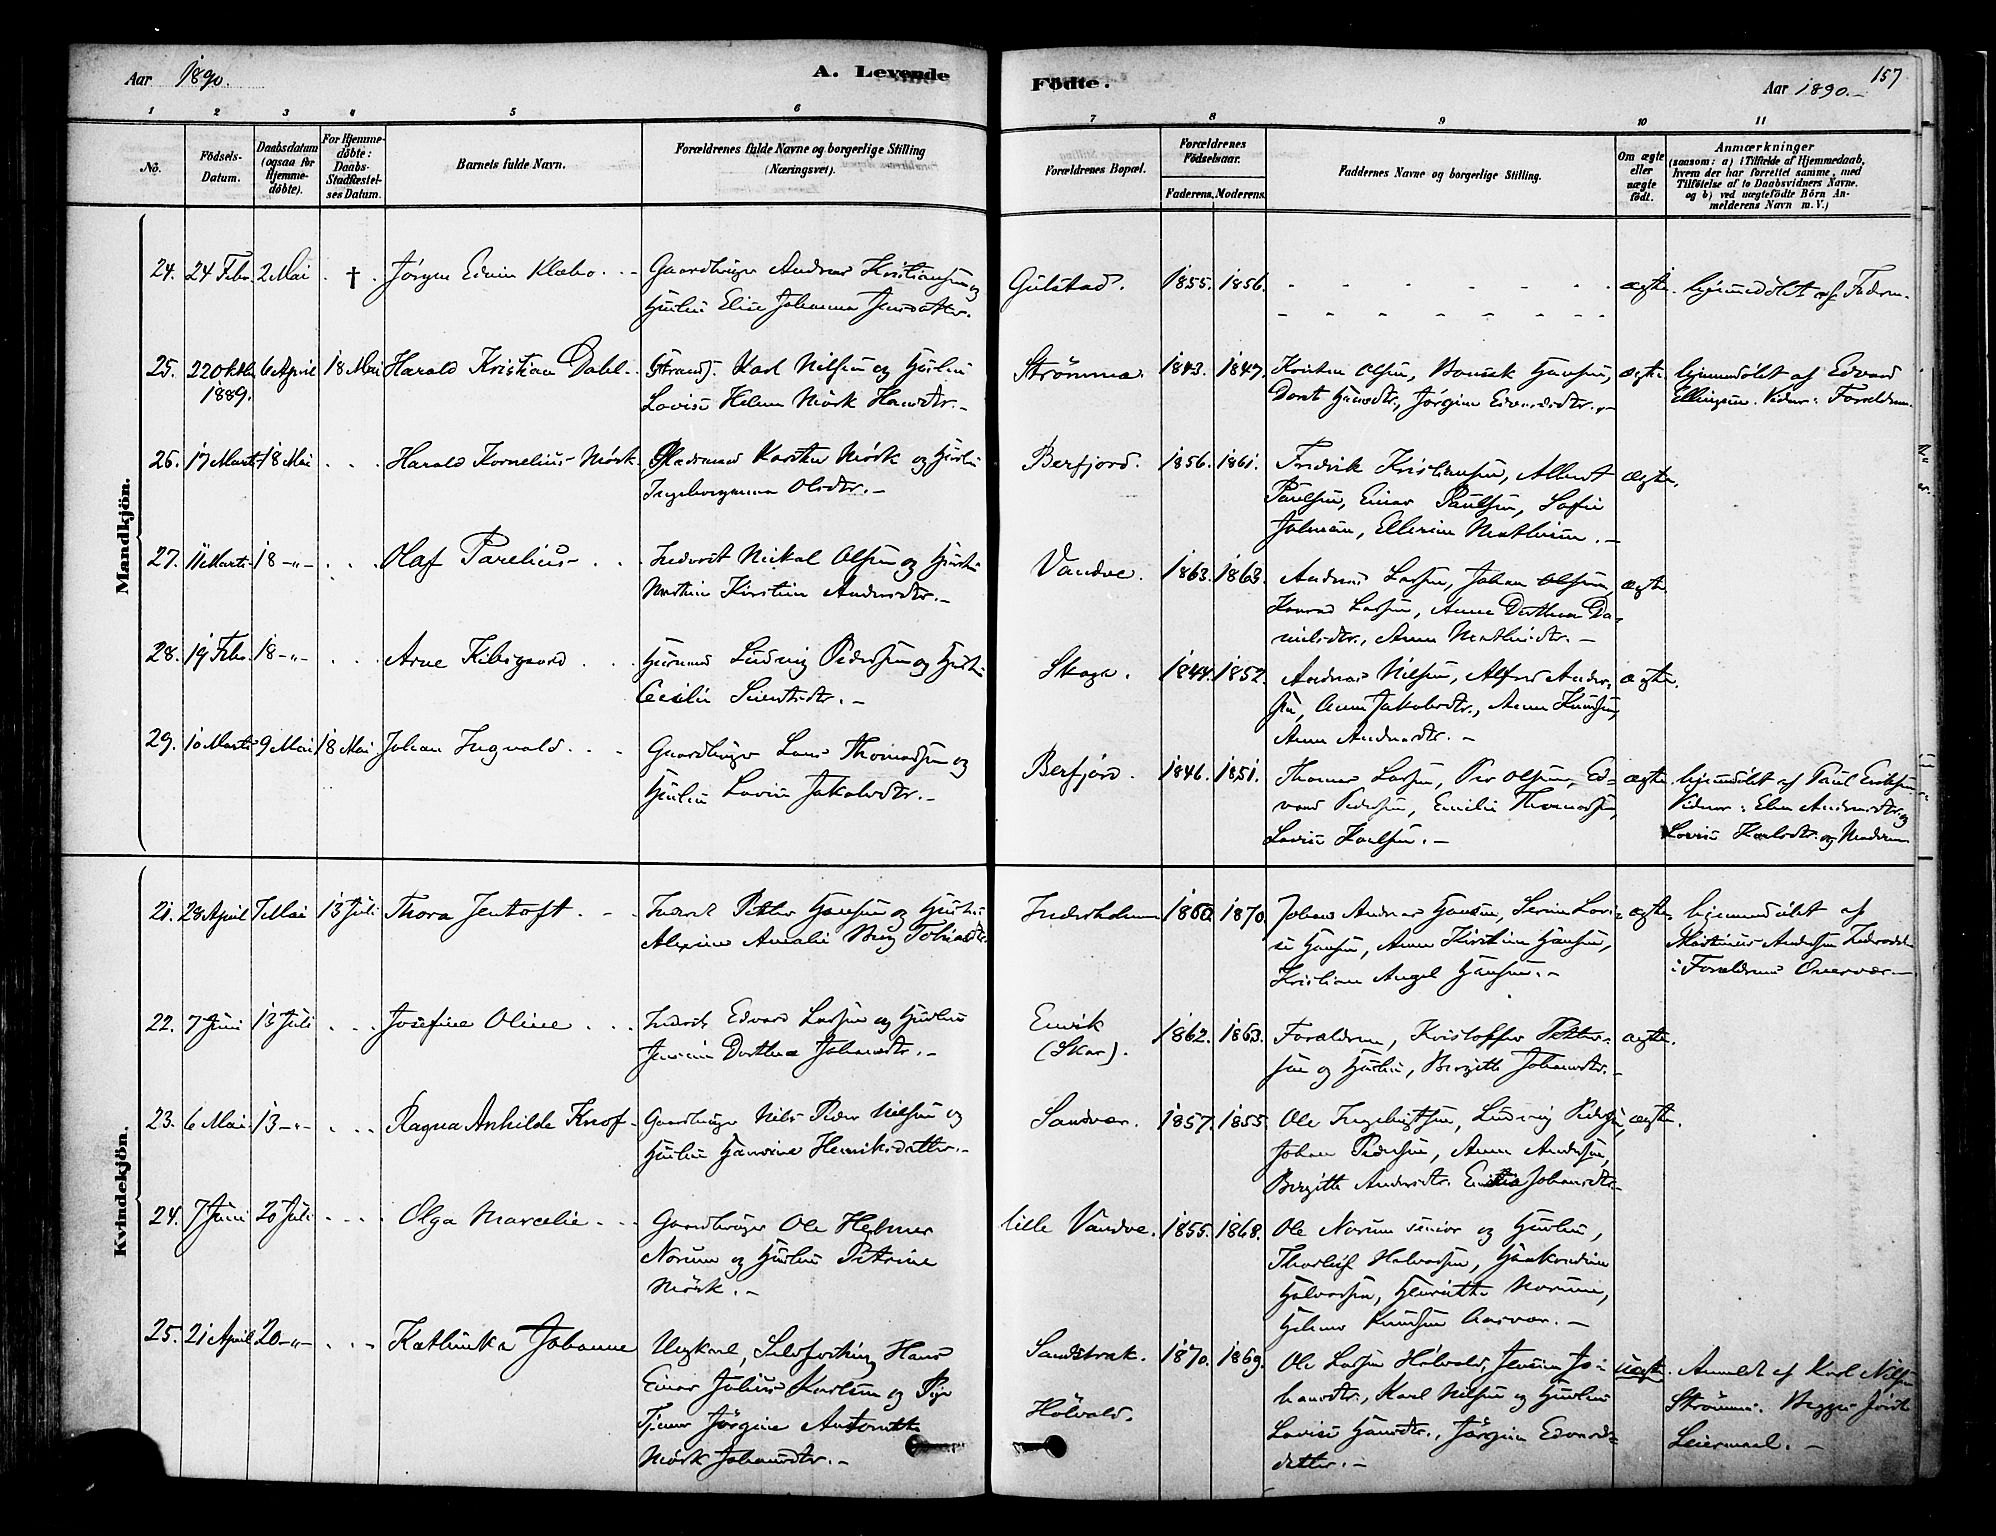 Aar 1890.
A. Levende
Födte.
Aar 1890.
157
1 2 3 4 5 6 7 8 9 10 11
No.
Födsels-Datum.
Daabsdatum (ogsaa for Hjemme-döbte).
For Hjemme-döbte: Daabs-Stadfæstel-ses Datum.
Barnets fulde Navn.
Forældrenes fulde Navne og borgerlige Stilling (Næringsvei).
Forældrenes Bopæl.
Forældrenes Födselsaar.
Faderens. Moderens.
Faddernes Navne og borgerlige Stilling.
Om ægte eller uægte födt.
Anmærkninger
(saasom: a) i Tilfælde af Hjemmedaab,
hvem der har forrettet samme, med
Tilföielse af to Daabsvidners Navne.
og b) ved uægtefödte Börn An-
melderens Navn m. V.)
Mandkjön.
24. 24 Febr 2 Mai † Jørgen Edvin Klæbo
Gaardbruger Andreas Kristiansen og
Hustru Elise Johanna Jensdatter.
Gulstad. 1855. 1856. ægte. hjemmedöbt af Faderen
25. 22 Oktbr 1889. 6 April 18 Mai Harald Kristian Dahl
Strands. Karl Nilsen og Hustru
Lovise Helene Mörk Hansdtr.
Strømmen 1843. 1847.
Kristen Olsen, Hansen,
Doret Hansdtr., Jørgine Edvardsdtr.
ægte. hjemmedöbt af Edvard
Ellingsen. Vidner: Forældrene
26. 17 Marts 18 Mai Harald Kornelius Mörk
Pladsmand Karsten Mörk og Hustru
Ingeborganna Olsdtr.
Berfjord. 1856. 1861.
Fredrik Kristiansen, Albert
Paulsen, Einar Paulsen, Sofie
Johnsen, Ellerine Mathisen.
ægte.
27. 11 Marts 18 Olaf Parelius
Inderst Nickal Olsen og Hustru
Martine Kirstine Andersdtr.
Vandve. 1863. 1863.
Andreas Larsen, Johan Olsen,
Konrad Larsen, Anne Dorthea Da-
nielsdtr., Anna Mathisdtr.
ægte.
28. 19 Febr 18 Arne Kibsgaard
Husmand Ludvig Pedersen og Hustru
Cecilie Sivertsdtr.
Skage. 1844. 1852.
Andreas Nilsen, Alfred Ander-
sen, Anna Jakobsdtr., Anna Knudsen,
Anna Andersdtr.
ægte.
29. 10 Marts 9 Mai 18 Mai Johan Ingvald
Gaardbruger Lars Thomassen og
Hustru Lovise Jakobsdtr.
Berfjord. 1846. 1851.
Thomas Larsen, Per Olsen, Ed-
vard Pedersen, Emilie Thomassen,
Lovise Karlsen.
ægte. hjemmedöbt af Paul Eriksen
Vidner: Elen Andersdtr. og
Lovise Karlsdtr. og Moderen
Kvindekjön.
21. 28 April 7 Mai 13 Juli Thora Jentoft
Inderst Petter Hansen og Hustru
Alexine Amalie Berg Tobiasdtr.
Inderholmen 1860 1870
Johan Andreas Hansen, Serine Lovi-
se Hansen, Anna Kirstine Hansen,
Kristiane Angel Hansen.
ægte. hjemmedöbt af
Martinus Andersen
i Forældrenes Overvær.
22. 7 Juni 13 Juli Josefine Oline
Inderst Edvard Larsen og Hustru
Jensine Dorthea Johansdtr.
Emvik
(Skar). 1862. 1863.
Forældrene, Kristoffer Petter-
sen og Hustru, Birgitte Johansdtr.
ægte.
23. 6 Mai 13 Ragna Anhilde Knof
Gaardbruger Nils Peder Nilsen og
Hustru Hansine Henriksdatter.
Sandvær. 1857. 1855.
Ole Ingebrigtsen, Ludvig Pedersen,
Johan Pedersen, Anna Andersen,
Birgitte Andersdtr. Johansdtr.
ægte.
24. 7 Juni 20 Juli Olga Marcelie
Gaardbruger Ole Helmer
Norum og Hustru Petrine
Mörk.
Lille Vandve. 1855. 1868.
Ole Norum senior og Hustru,
Thorleif Halvorsen, Haakondine
Halvorsen, Henriette Norum,
Helmer Knudsen Aasvær.
25. 21 April 20 Kathinka Johanne
Ungkarl, Selvfostring Hans
Einar Julius Karlsen og Pige
Tjener Jörgine Antonette
Mörk Johansdtr.
Sandstrak. 1870. 1869.
Hölvald.
Ole Larsen Hölvald, Jensine Jo-
hansdtr., Karl Nilsen og Hustru
Lovise Hansdtr., Jörgine Edvards-
datter.
uægte. Anmeldt af Karl Nilsen
Strömmen. Begges förste
Leiermaal.